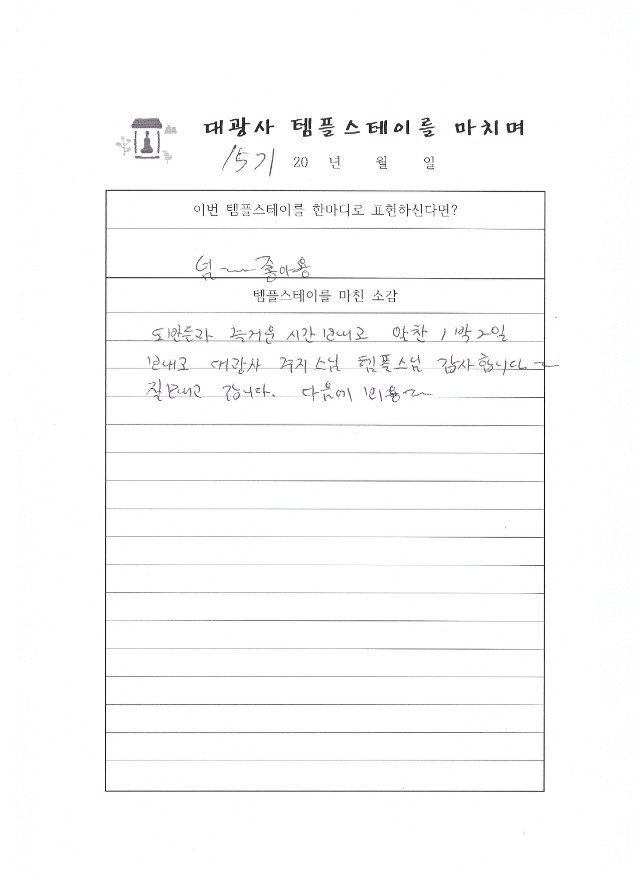 대광사 템플스테이를 마치며
15기 20 년 월 일
이번 템플스테이를 한마디로 표현하신다면?
넘~ 좋아용
템플스테이를 마친 소감
즐거운 시간 보내고 알찬 1박2일
보내고 대광사 주지스님 템플스님 감사합니다~
잘보내고 갑니다. 다음에 뵈용~